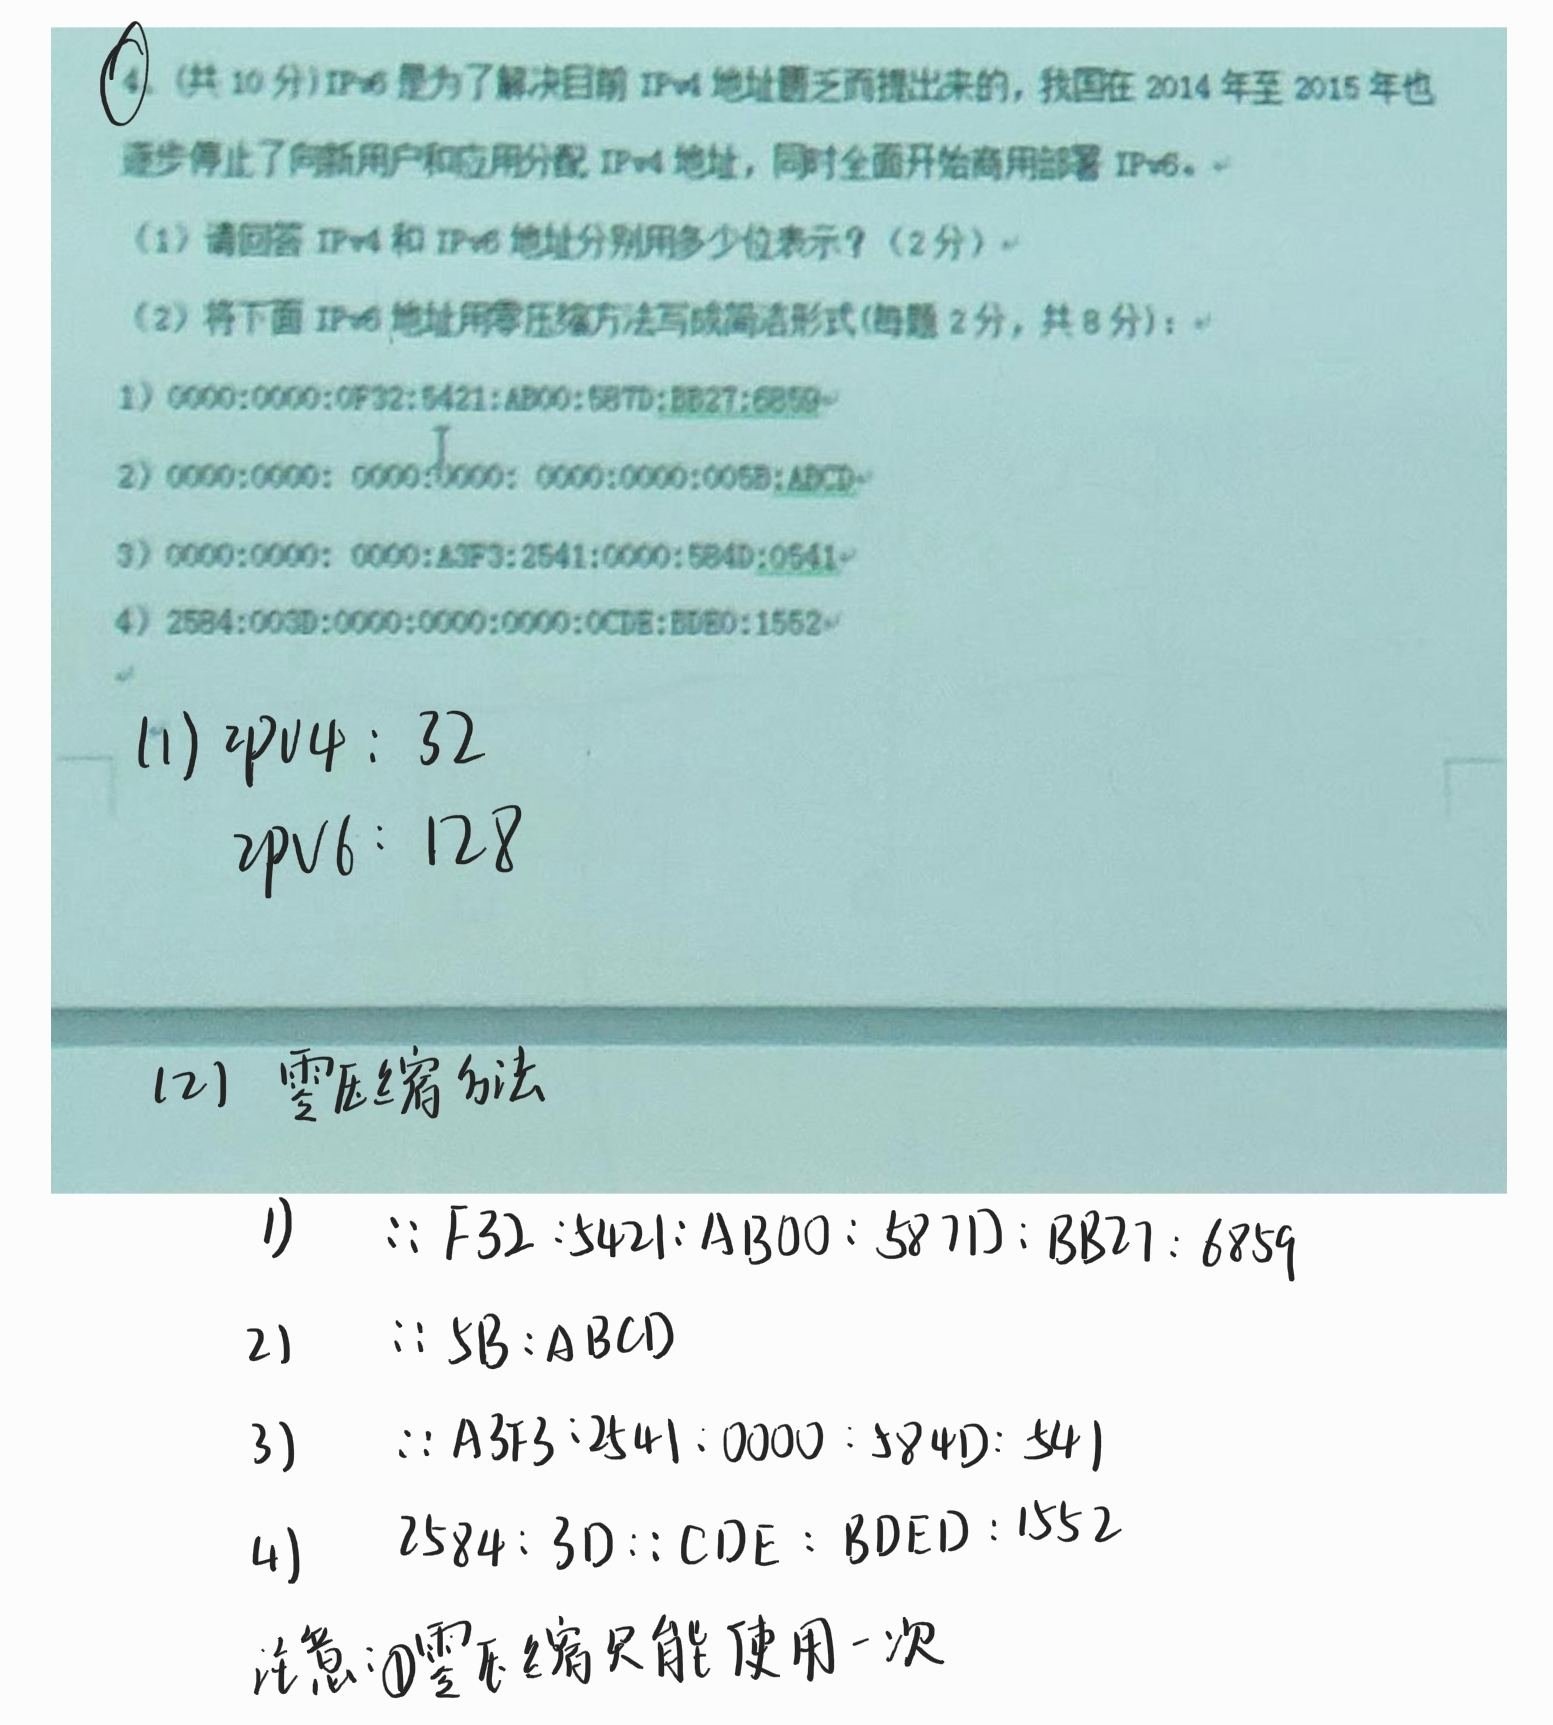 4、(共 10 分)IPv6 是为了解决目前 IPv4 地址匮乏而提出来的，我国在 2014 年至 2015 年也
逐步停止了向新用户和应用分配 IPv4 地址，同时全面开始商用部署 IPv6。
（1）请回答 IPv4 和 IPv6 地址分别用多少位表示？（2 分）
（2）将下面 IPv6 地址用零压缩方法写成简洁形式(每题 2 分，共 8 分)：
1）0000:0000:0F32:5421:AB00:587D:BB27:6859
2）0000:0000: 0000:0000: 0000:0000:005B:ABCD
3）0000:0000: 0000:A3F3:2541:0000:584D:0541
4）2584:003D:0000:0000:0000:0CDE:BDE0:1552
(1) ipv4: 32
ipv6: 128
(2) 零压缩方法
1) ::F32:5421:AB00:587D:BB27:6859
2) ::5B:ABCD
3) ::A3F3:2541:0000:584D:541
4) 2584:3D::CDE:BDED:1552
注意:①零压缩只能使用一次